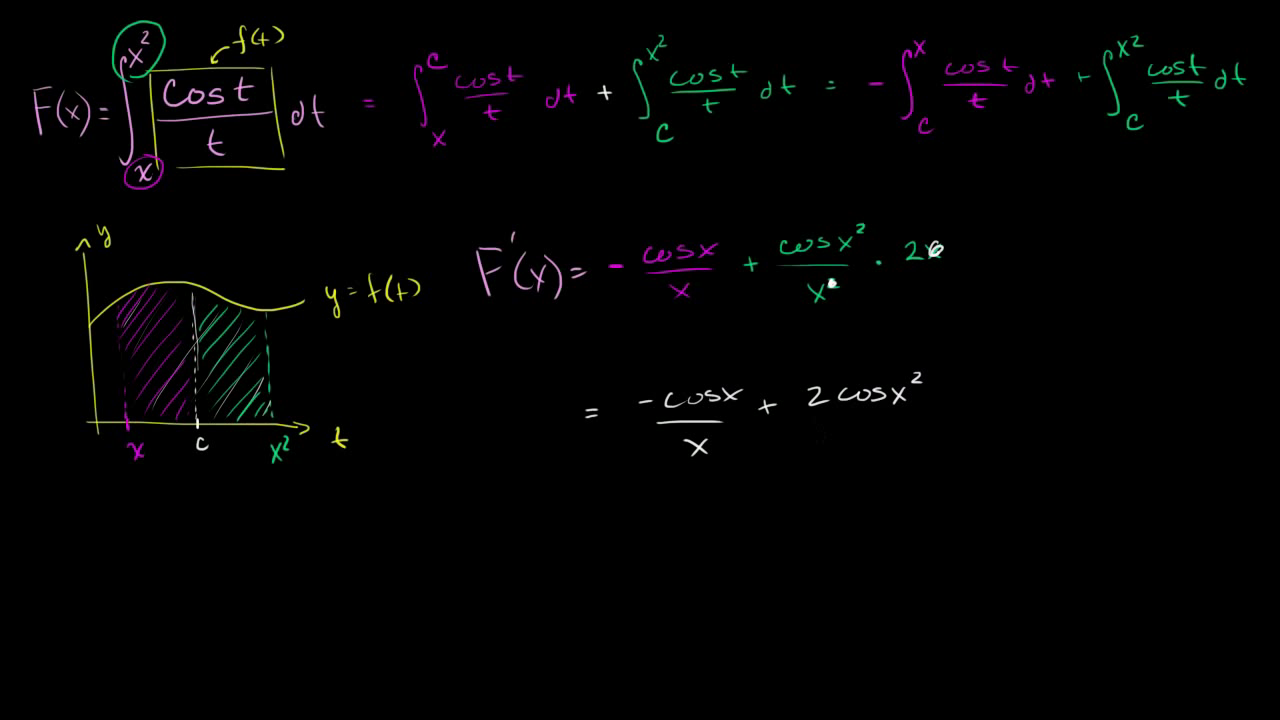 f(t)
F(x) = ∫ₓ^{x²} cos t / t dt = ∫ₓ^{c} cos t / t dt + ∫_c^{x²} cos t / t dt = - ∫_c^{x} cos t / t dt + ∫_c^{x²} cos t / t dt
y
y = f(t)
x c x² t
F'(x) = - cos x / x + cos x² / x² · 2x
= -cos x / x + 2 cos x²